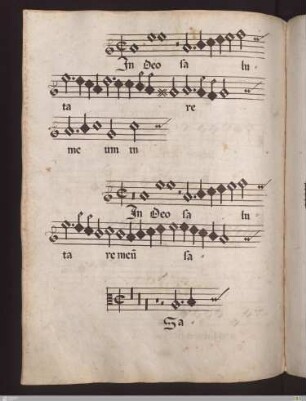 In Deo sa lu
ta re
me um in
In Deo sa lu
ta re meū sa
Sa